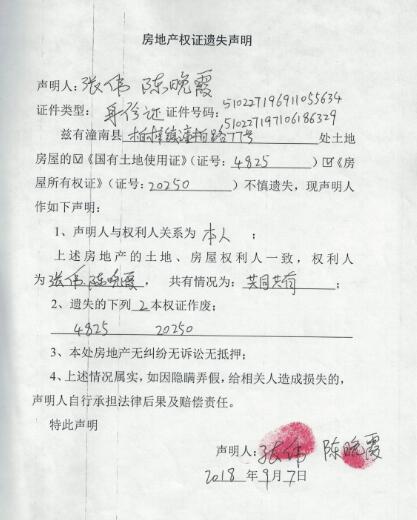 房地产权证遗失声明
声明人：张伟 陈晚霞
证件类型：身份证 证件号码：510227196911055634
510227197106186329
兹有潼南县 柏梓镇潼柏路77号 处土地
房屋的☑《国有土地使用证》（证号：4825）☑《房
屋所有权证》（证号：20250）不慎遗失，现声明人
作如下声明：
1、声明人与权利人关系为 本人 ；
上述房地产的土地、房屋权利人一致，权利人
为 张伟 陈晚霞 ，共有情况为：共同共有 ；
2、遗失的下列 2 本权证作废；
4825 20250
3、本处房地产无纠纷无诉讼无抵押；
4、上述情况属实，如因隐瞒弄假，给相关人造成损失的，
声明人自行承担法律后果及赔偿责任。
特此声明
声明人：张伟 陈晚霞
2018 年9月7日